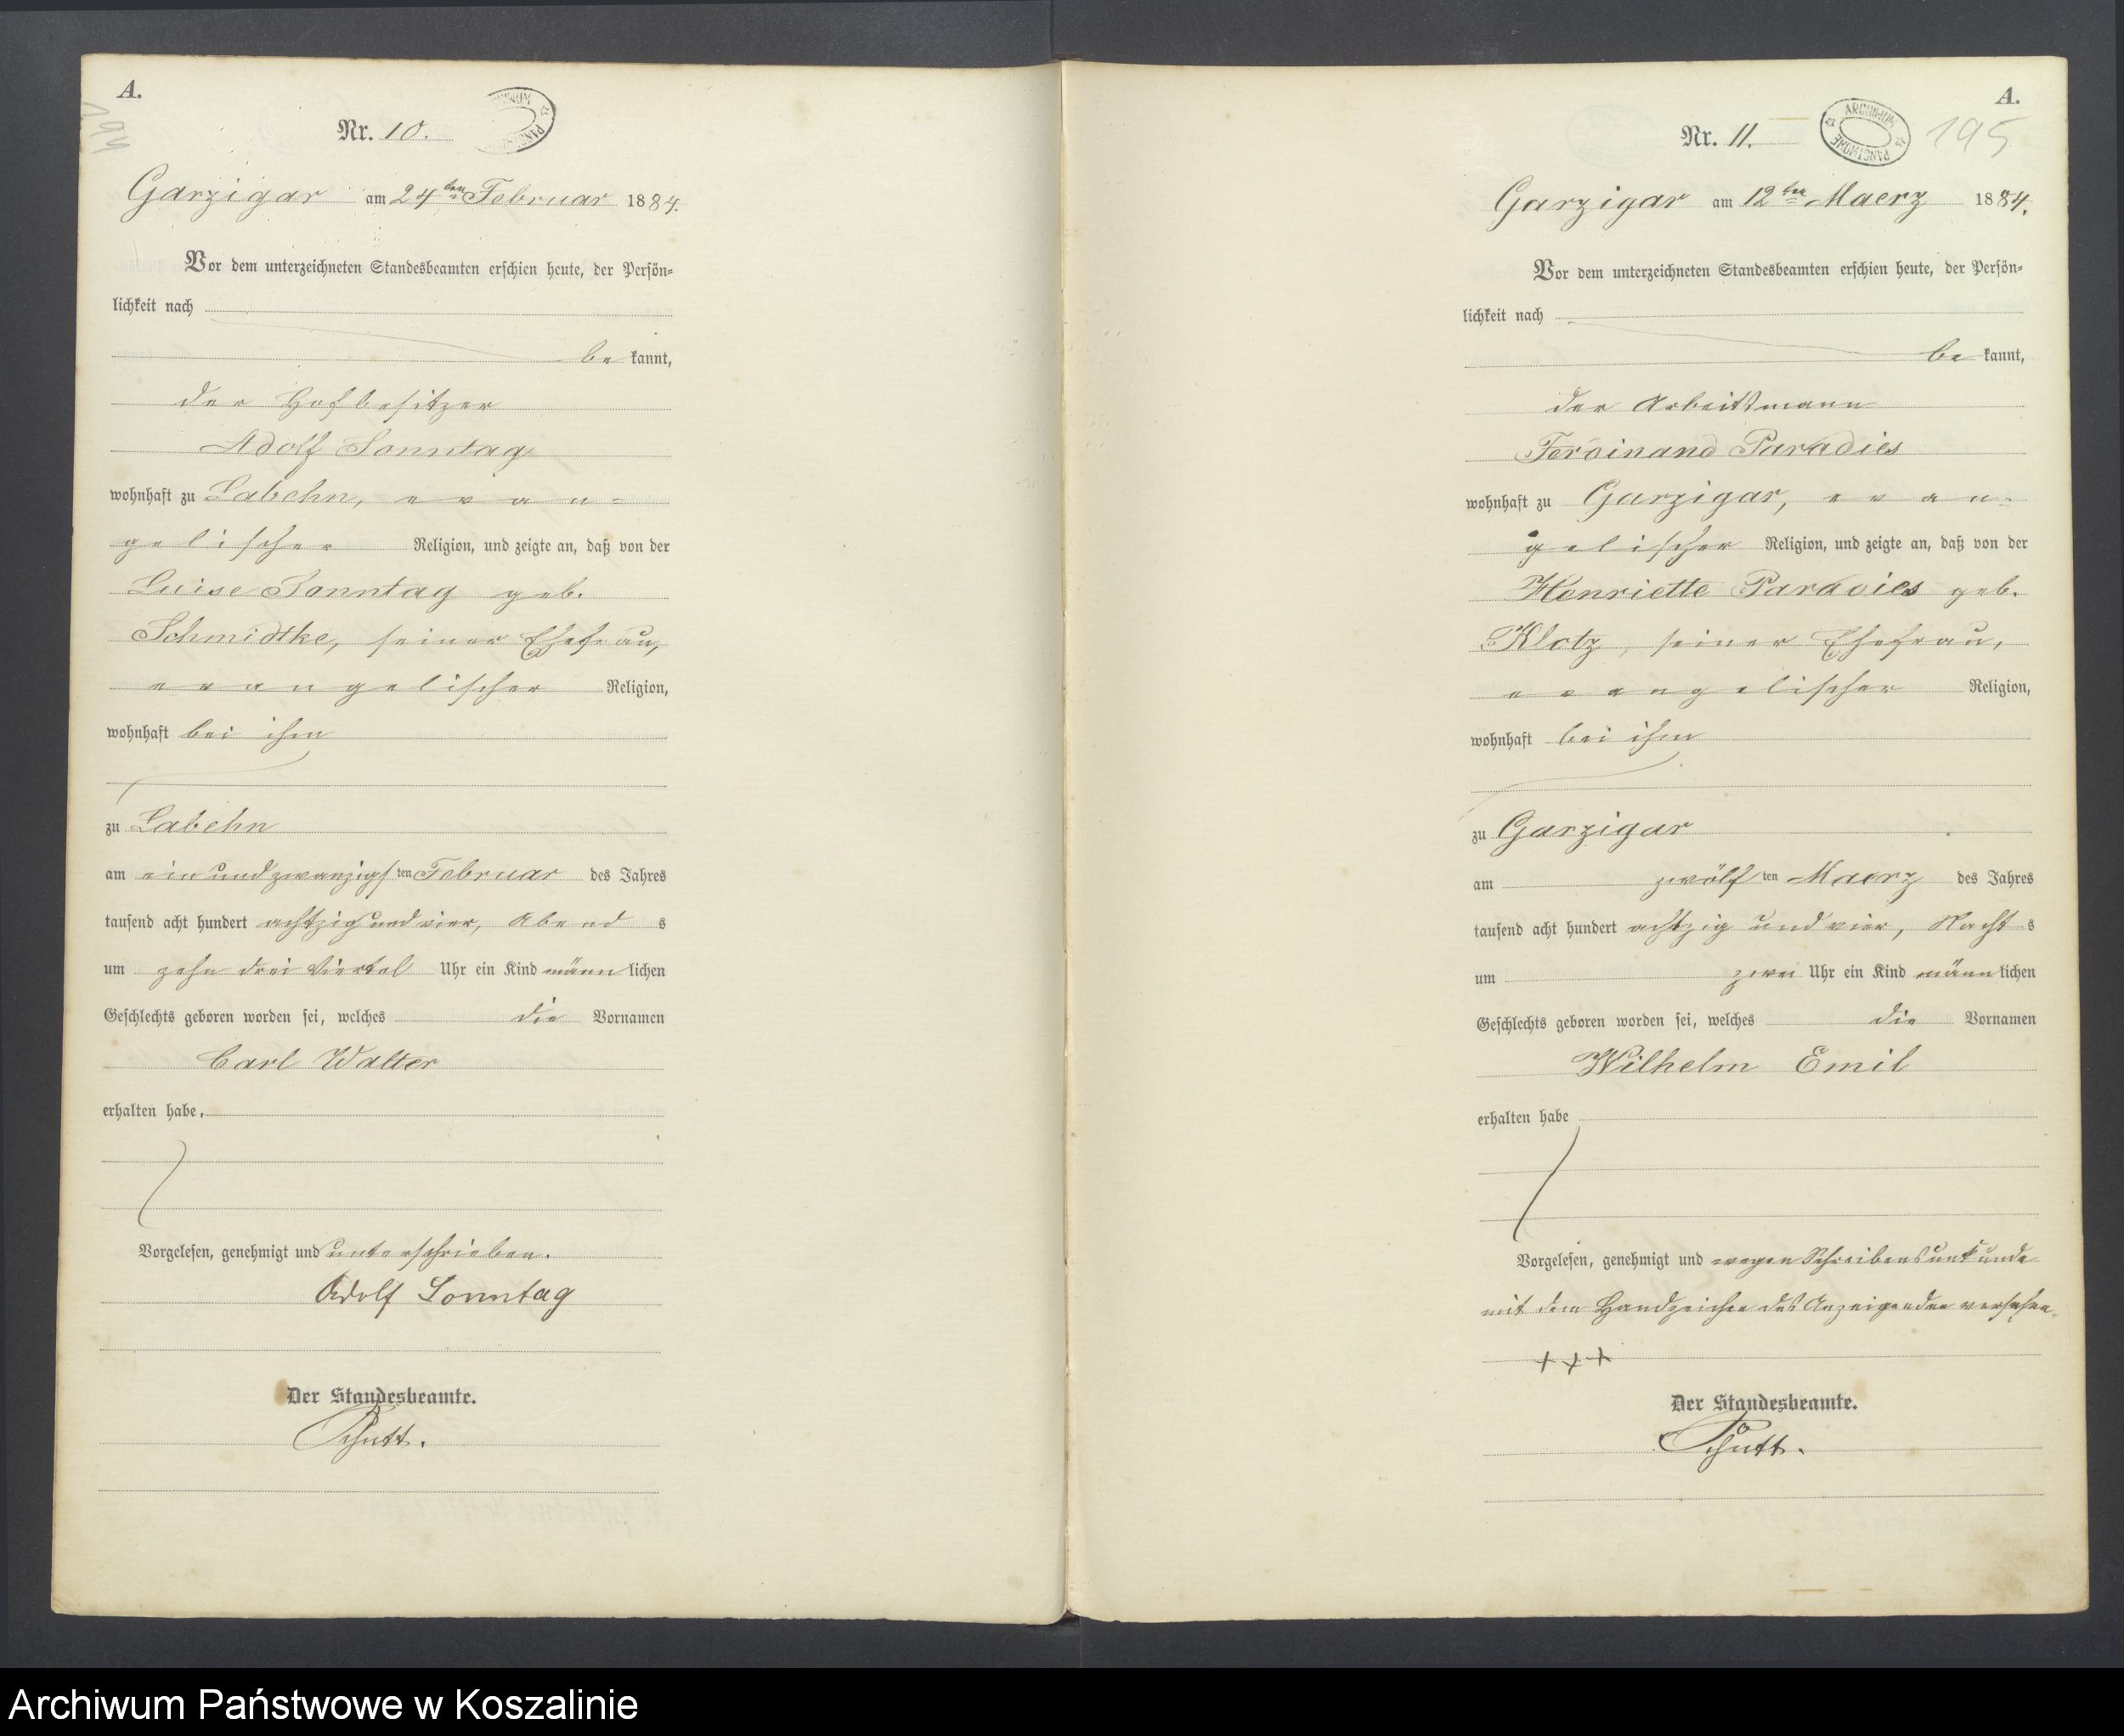 A.
194
Nr. 10.
ARCHIWUM PAŃSTWOWE
Garzigar am 24ten Februar 1884.
Vor dem unterzeichneten Standesbeamten erschien heute, der Persön-
lichkeit nach
be kannt,
der Hofbesitzer
Adolf Sonntag
wohnhaft zu Labehn, evan-
gelischer Religion, und zeigte an, daß von der
Luise Sonntag geb.
Schmidtke, seiner Ehefrau,
evangelischer Religion,
wohnhaft bei ihm
zu Labehn
am ein und zwanzigsten Februar des Jahres
tausend acht hundert achtzig und vier, Abend s
um zehn drei Viertel Uhr ein Kind männ lichen
Geschlechts geboren worden sei, welches die Vornamen
Carl Walter
erhalten habe.
Vorgelesen, genehmigt und unterschrieben.
Adolf Sonntag
Der Standesbeamte.
A.
Nr. 11.
ARCHIWUM PAŃSTWOWE
195
Garzigar am 12ten Maerz 1884.
Vor dem unterzeichneten Standesbeamten erschien heute, der Persön-
lichkeit nach
be kannt,
der Arbeitsmann
Ferdinand Paradies
wohnhaft zu Garzigar, evan-
gelischer Religion, und zeigte an, daß von der
Henriette Paradies geb.
Klotz, seiner Ehefrau,
evangelischer Religion,
wohnhaft bei ihm
zu Garzigar
am zwölf ten Maerz des Jahres
tausend acht hundert achtzig und vier, Nacht s
um zwei Uhr ein Kind männ lichen
Geschlechts geboren worden sei, welches die Vornamen
Wilhelm Emil
erhalten habe
Vorgelesen, genehmigt und wegen Schreibensunkunde
mit dem Handzeichen des Anzeigenden versehen.
+++
Der Standesbeamte.
Archiwum Państwowe w Koszalinie